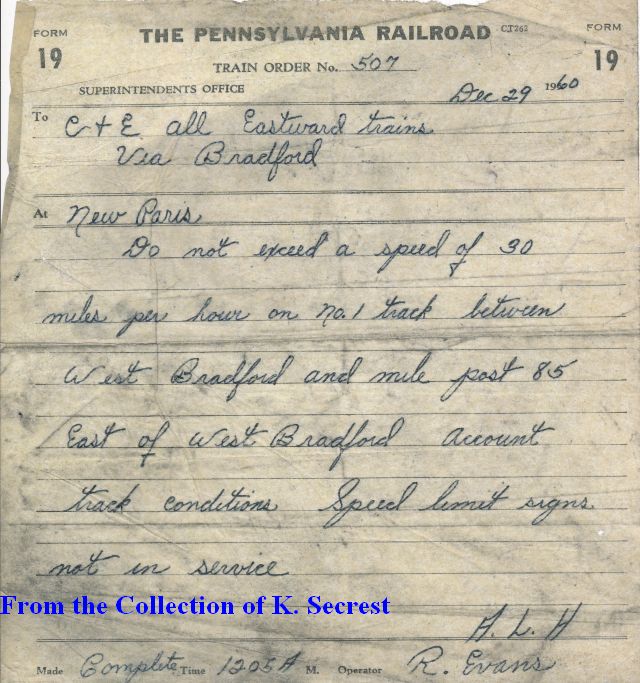 FORM 19 THE PENNSYLVANIA RAILROAD CT262 FORM 19
TRAIN ORDER No. 507
SUPERINTENDENTS OFFICE Dec 29 1960
To C + E all Eastward trains
Via Bradford
At New Paris
Do not exceed a speed of 30
miles per hour on No. 1 track between
West Bradford and mile post 85
East of West Bradford account
track conditions Speed limit signs
not in service
From the Collection of K. Secrest
A. L. H
Made Complete Time 1205 A M. Operator R. Evans